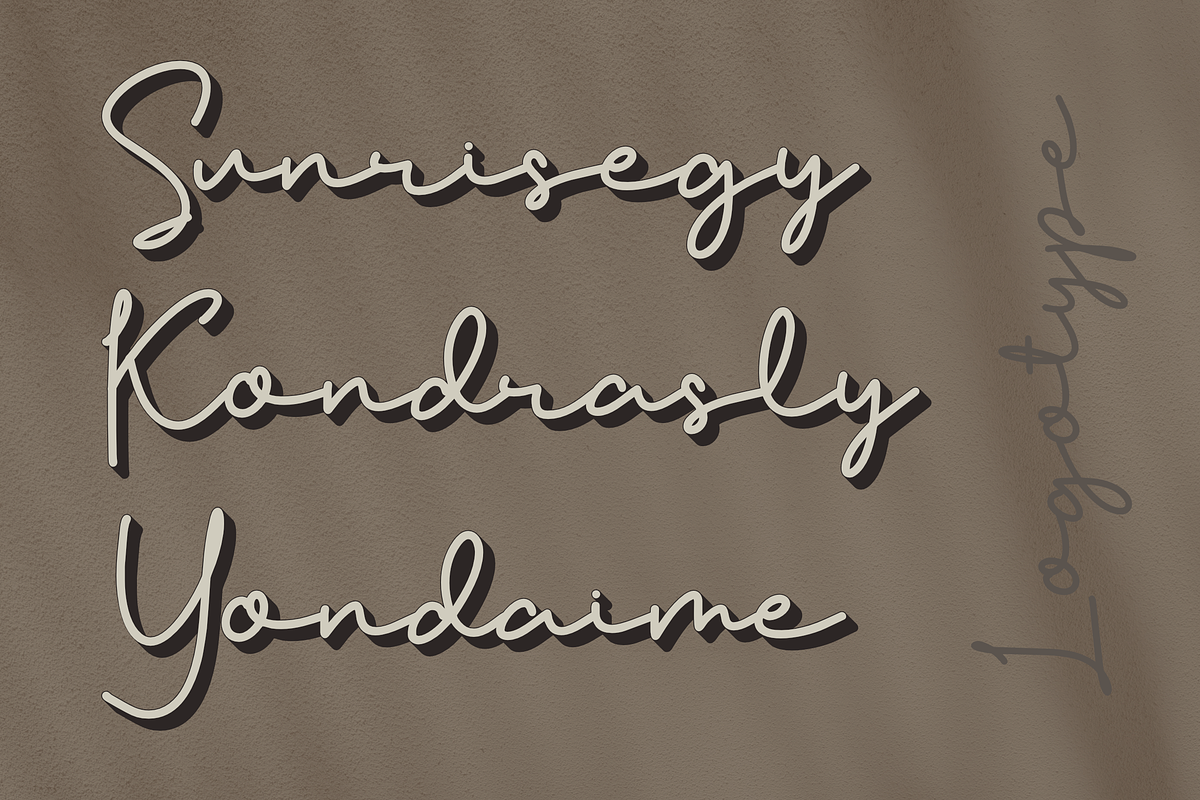 Sunrisegy
Kondrasly
Yondaime
Logotype